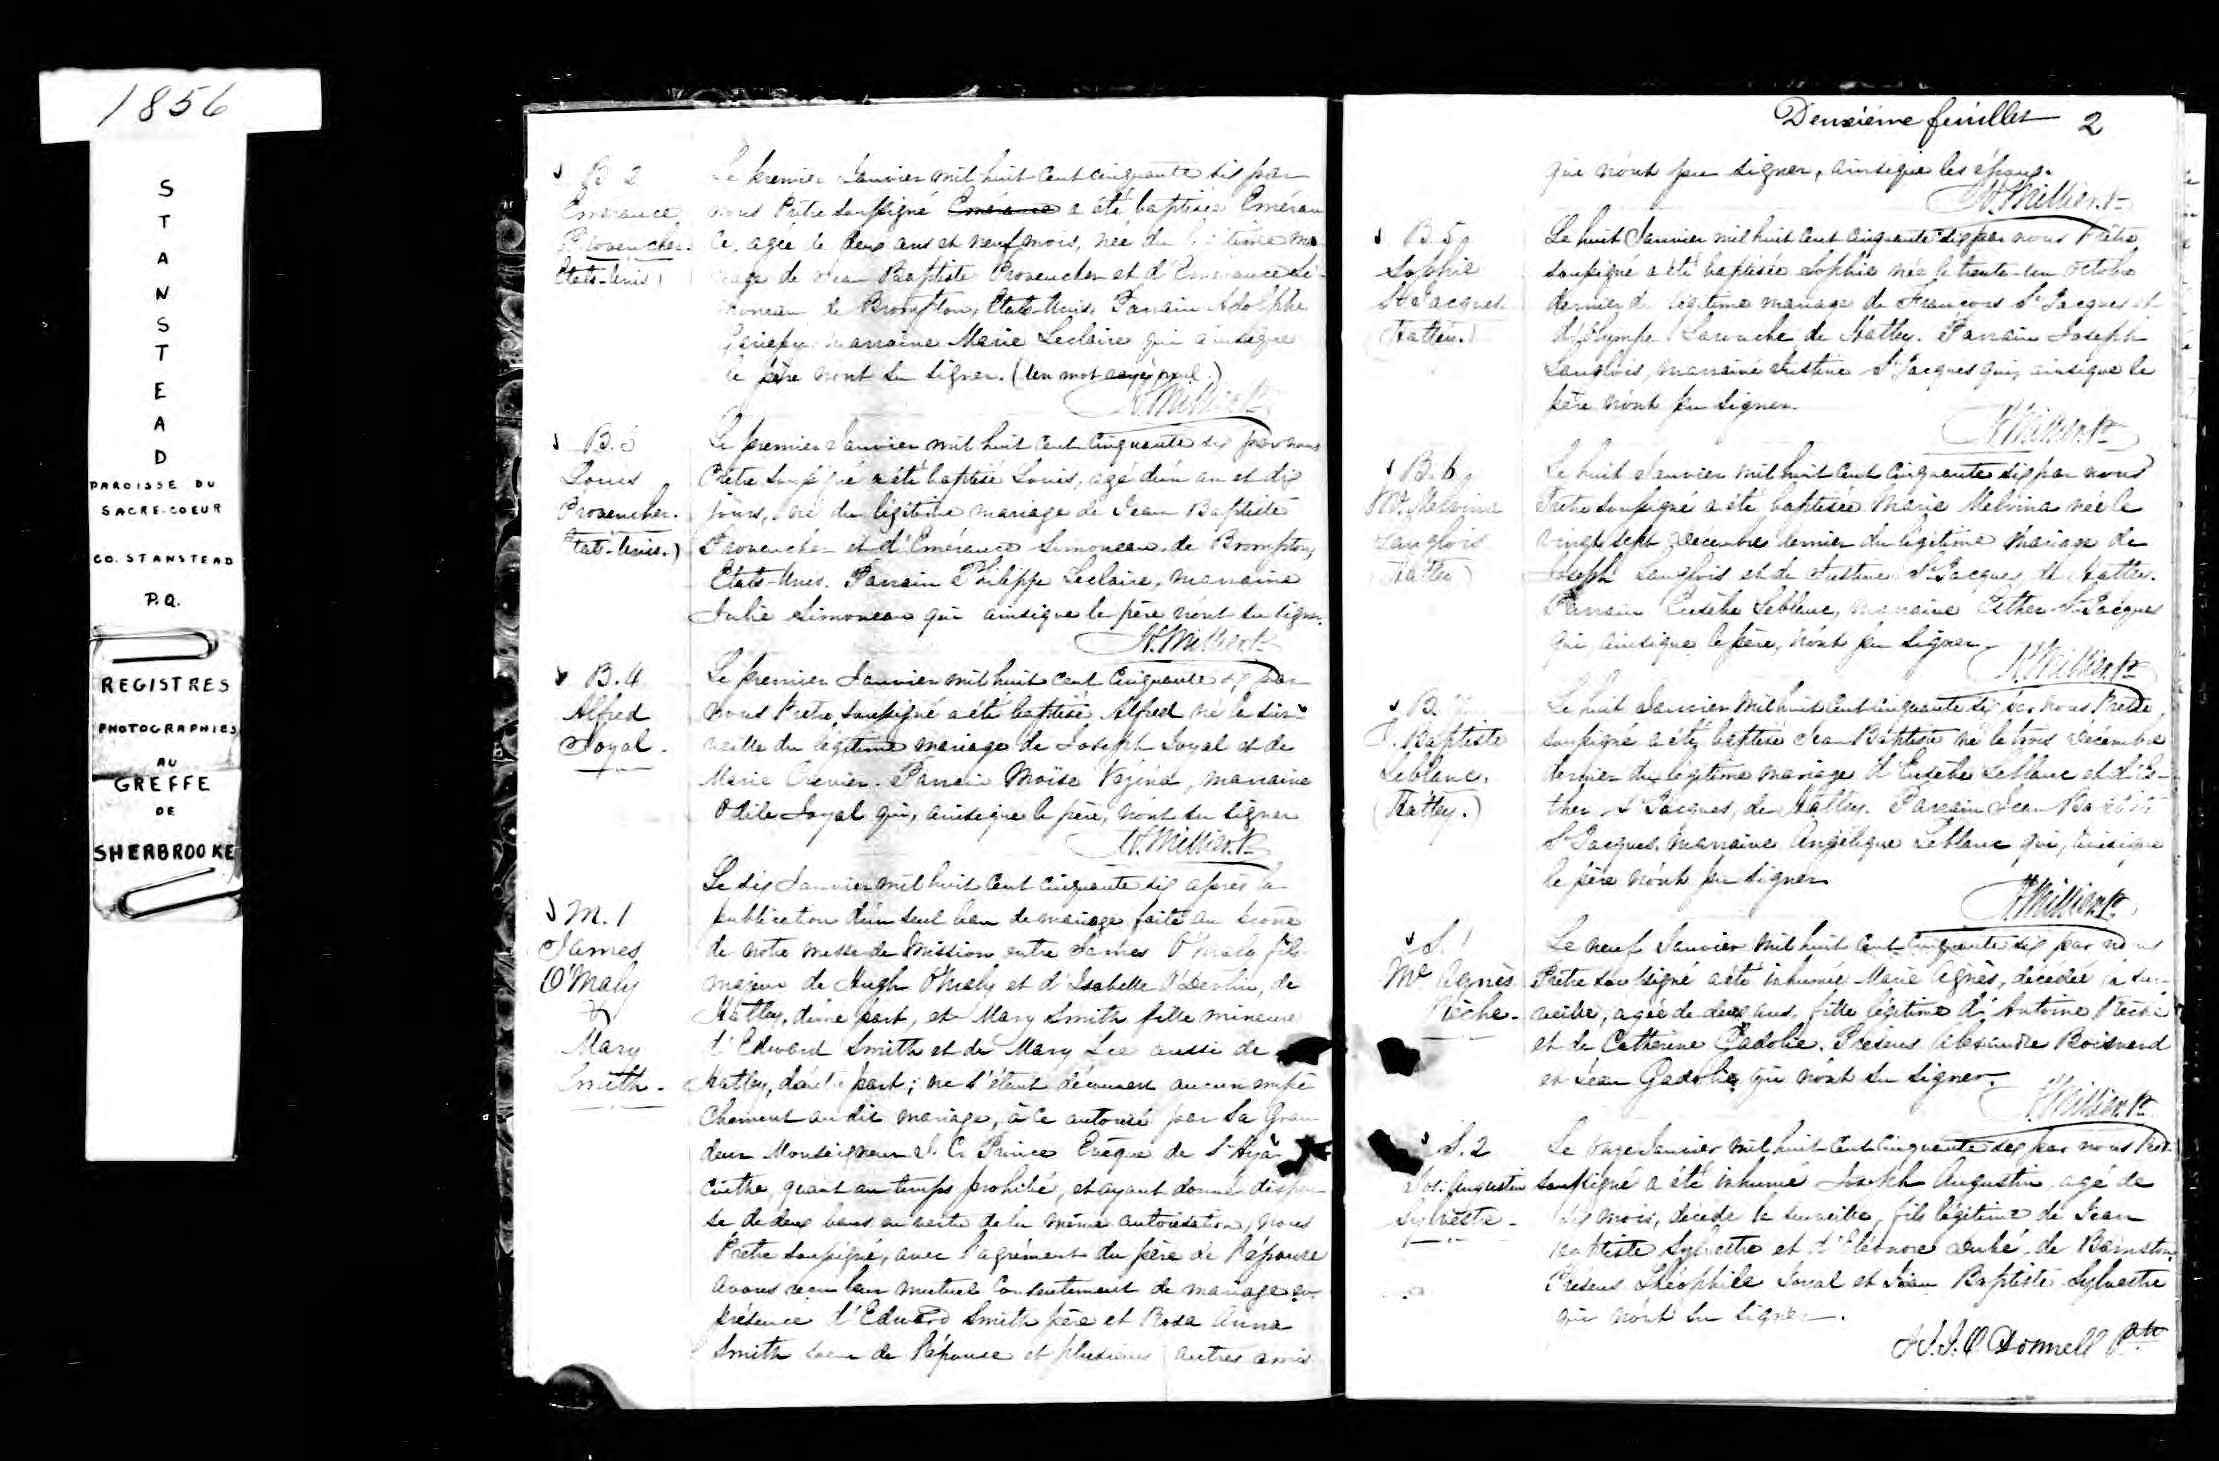 1856
S
T
A
N
S
T
E
A
D
PAROISSE DU
SACRE-COEUR
CO. STANSTEAD
P.Q.
REGISTRES
PHOTOGRAPHIES
AU
GREFFE
DE
SHERBROOKE
B 2
Emérance
Provencher
Etats-Unis)
Le premier Janvier mil huit cent cinquante six par
nous Prêtre soussigné Emérance a été baptisée Eméran
ce, agée de deux ans et neuf mois, née du légitime ma
riage de Jean Baptiste Provencher et d'Emérance Si-
moneau de Brompton, Etats-Unis. Parrain Adolphe
marraine Marie Leclaire qui ainsique
le père n'ont su signer. (Un mot rayé nul.)
H. Millier. Pt.
B. 3
Louis
Provencher.
Etats-Unis.)
Le premier Janvier mil huit cent cinquante six par nous
Prêtre soussigné a été baptisé Louis, agé d'un an et dix
jours, né du légitime mariage de Jean Baptiste
Provencher et d'Emérance Simoneau de Brompton,
Etats-Unis. Parrain Philippe Leclaire, marraine
Julie Simoneau qui ainsique le père n'ont su signer.
H. Millier. Pt.
B. 4
Alfred
Joyal.
Le premier Janvier mil huit cent cinquante six par
nous Prêtre soussigné a été baptisé Alfred né le sur-
veille du légitime mariage de Joseph Joyal et de
Marie Crevier. Parrain Moïse marraine
Odile Joyal qui, ainsique le père, n'ont su signer
H. Millier. Pt.
M. 1
James
O'Maly
&
Mary
Smith.
Le dix Janvier mil huit cent cinquante six après la
publication d'un seul ban de mariage faite au prône
de notre messe de Mission entre James O'Maly fils
majeur de Hugh O'Maly et d'Isabelle Devlin, de
Hatley, d'une part, et Mary Smith fille mineure
d'Edward Smith et de Mary Lee aussi de
Hatley, d'autre part; ne s'étant découvert aucun empê
chement au dit mariage, à ce autorisé par Sa Gran
deur Monseigneur J. C. Prince Evêque de St Hya-
cinthe, quant au temps prohibé, et ayant donné dispen
se de deux bans en vertu de la même autorisation, nous
Prêtre soussigné, avec l'agrément du père de l'épouse
avons reçu leur mutuel consentement de mariage en
présence d'Edward Smith père et Rose Anna
Smith soeur de l'épouse et plusieurs autres amis
Deuxième feuillet 2
qui n'ont pu signer, ainsique les époux.
H. Millier. Pt.
B. 5
Sophie
St Jacques
(Hatley.)
Le huit Janvier mil huit cent cinquante six par nous Prêtre
soussigné a été baptisée Sophie née le trente-un Octobre
dernier du légitime mariage de François St Jacques et
d'Olympe Larouche de Hatley. Parrain Joseph
Langlois, marraine Justine St Jacques qui, ainsique le
père n'ont pu signer.
H. Millier. Pt.
B. 6
Me. Melvina
Langlois
(Hatley)
Le huit Janvier mil huit cent cinquante six par nous
Prêtre soussigné a été baptisée Marie Melvina née le
vingt sept Décembre dernier du légitime mariage de
Joseph Langlois et de Justine St Jacques, de Hatley.
Parrain Eusèbe Leblanc, marraine Esther St Jacques
qui, ainsique le père, n'ont pu signer.
H. Millier. Pt.
B.
J. Baptiste
Leblanc.
(Hatley.)
Le huit Janvier mil huit cent cinquante six par nous Prêtre
soussigné a été baptisé Jean Baptiste né le trois Décembre
dernier du légitime mariage d'Eusèbe Leblanc et d'Es-
ther St Jacques, de Hatley. Parrain Jean Baptiste
St Jacques, marraine Angélique Leblanc qui, ainsique
le père n'ont pu signer.
H. Millier. Pt.
S. 1
Me Agnès
Pêche.
Le neuf Janvier mil huit cent cinquante six par nous
Prêtre soussigné a été inhumée Marie Agnès, décédée la sur-
veille, agée de deux ans, fille légitime d'Antoine Pêche
et de Catherine Gadolie. Présens Alexandre Boisverd
et Jean Gadolie qui n'ont su signer.
H. Millier. Pt.
S. 2
Jos. Augustin
Sylvestre.
Le onze Janvier mil huit cent cinquante six par nous Prêt.
soussigné a été inhumé Joseph Augustin, agé de
six mois, décédé la surveille, fils légitime de Jean
Baptiste Sylvestre et d'Eléonore Dubé, de Barnston.
Présens Théophile Joyal et Jean Baptiste Sylvestre
qui n'ont su signer.
O'Donnell Ptre